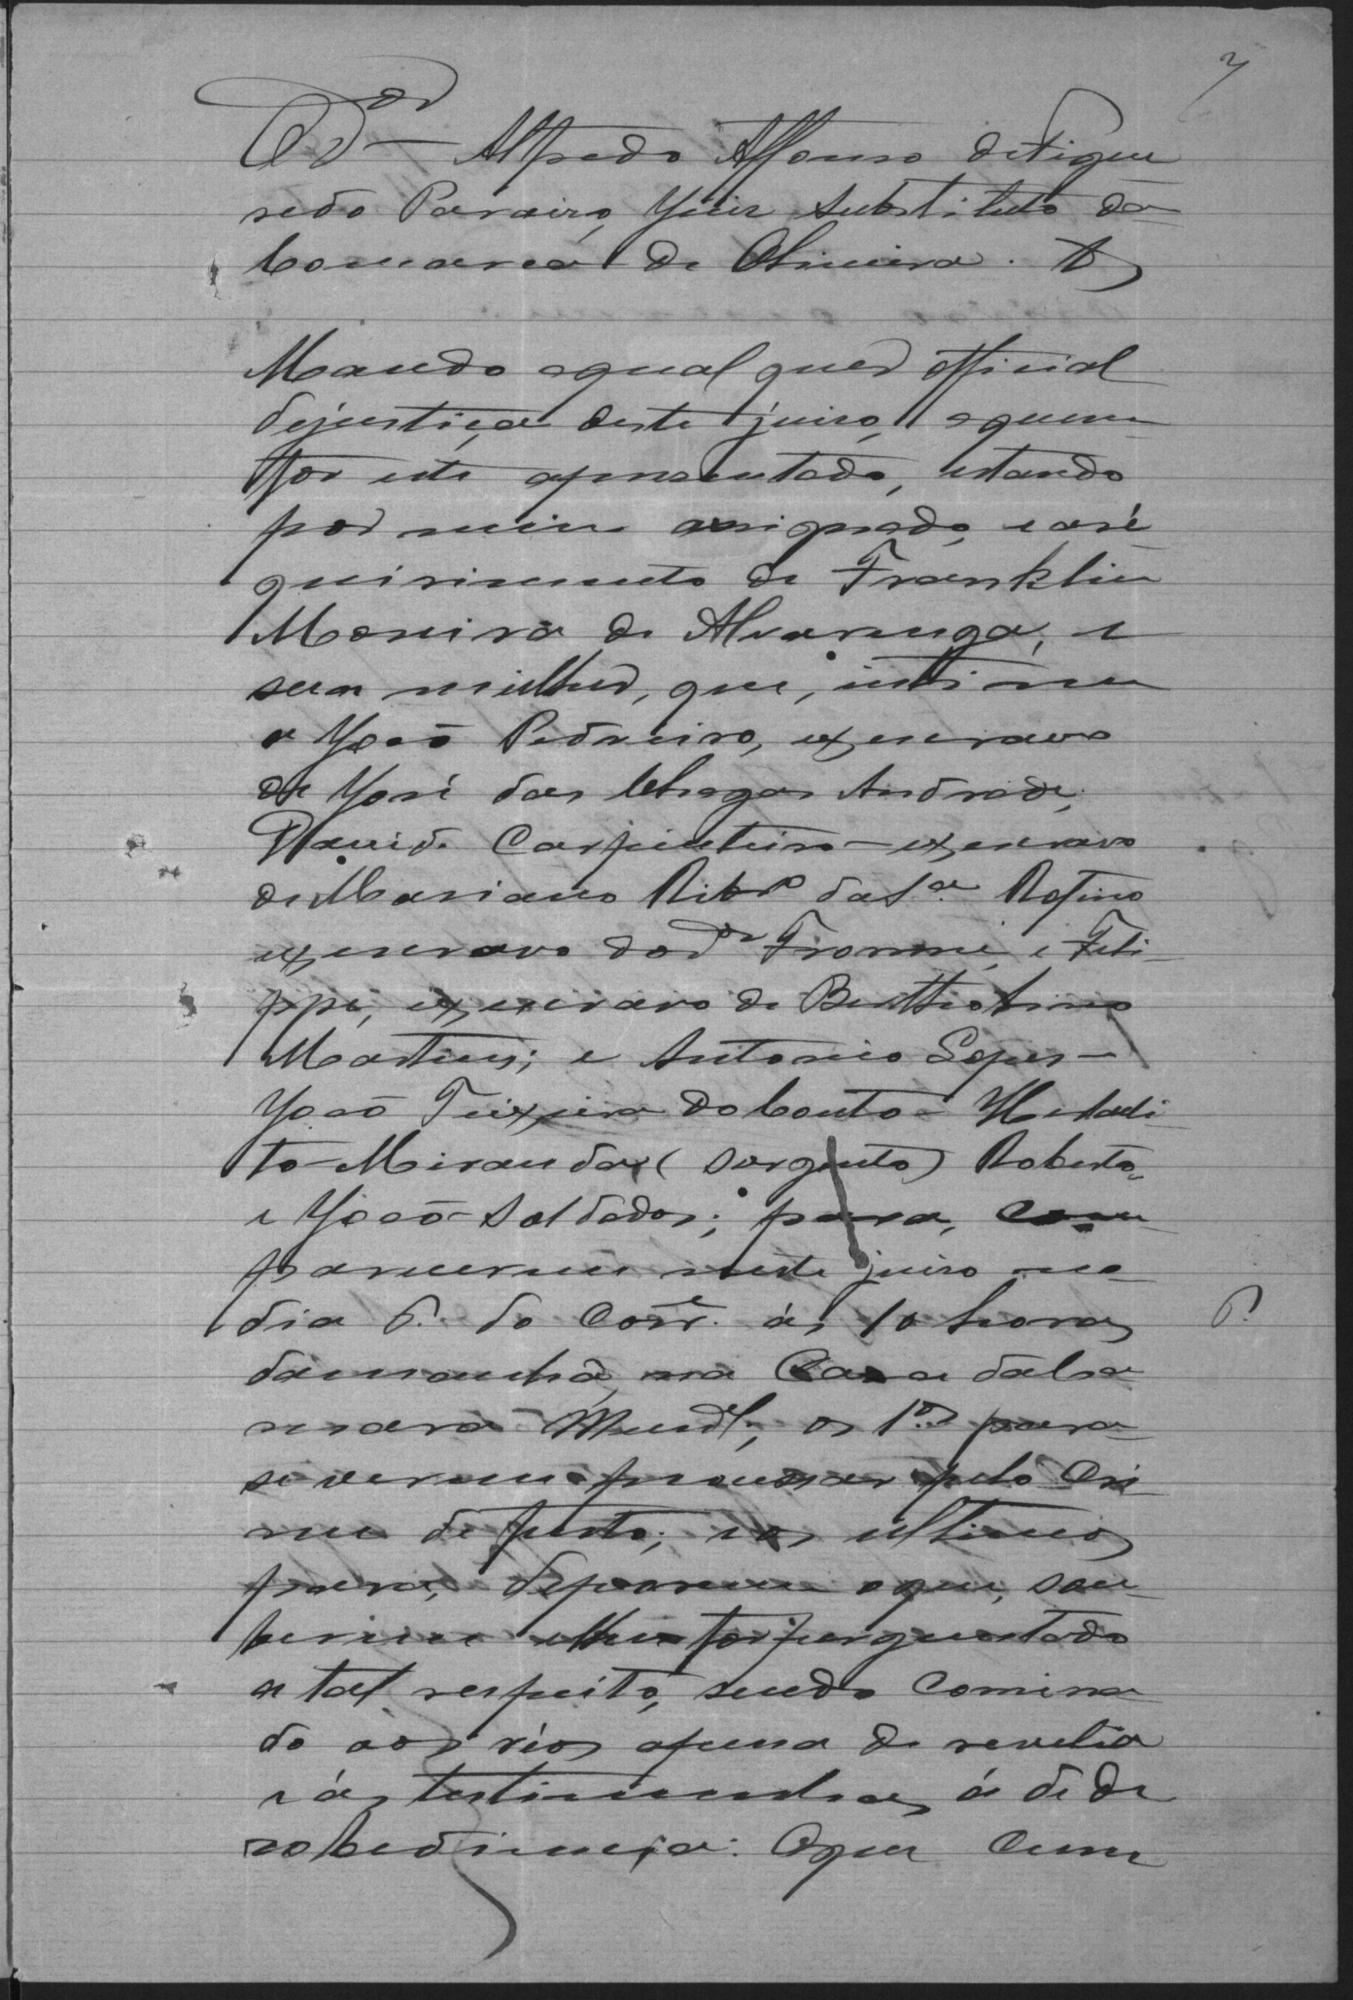 7
O Dor Alfredo Affonso de Figuei
redo Paraizo, Juiz Substituto da
Comarca de Oliveira. &
Mando aqual quer official
dejustiça deste juizo, aquem
for este apresentado, estando
por mim assignado, e a re
querimento de Franklin
Moreira de Alvarenga, e
sua mulher, que, intime
a João Pedreiro, ex escravo
de José das Chagas Andrade,
David Carpinteiro - ex escravo
de Mariano Ribro da Sa. Rofino
ex escravo do Dor Fromm, e Feli-
ppe, ex escravo de
Martins; e Antonio Lopes -
João Teixeira do Couto -
to - Miranda, (Sargento) Roberto,
e João - Soldados; para, com
parecerem neste juizo no
dia 6. do Corre. ás 10 horas
6.
da manhã, na Casa da Ca
mara Munal, os 1os para
se verem processar pelo Cri
me de furto; e os ultimos
para, deporem o que, sou
berem e lhes for perguntado
a tal respeito, sendo Comina
do aos réos apena de revelia
e ás testimunhas á de de
zobediencia. Oque Cum